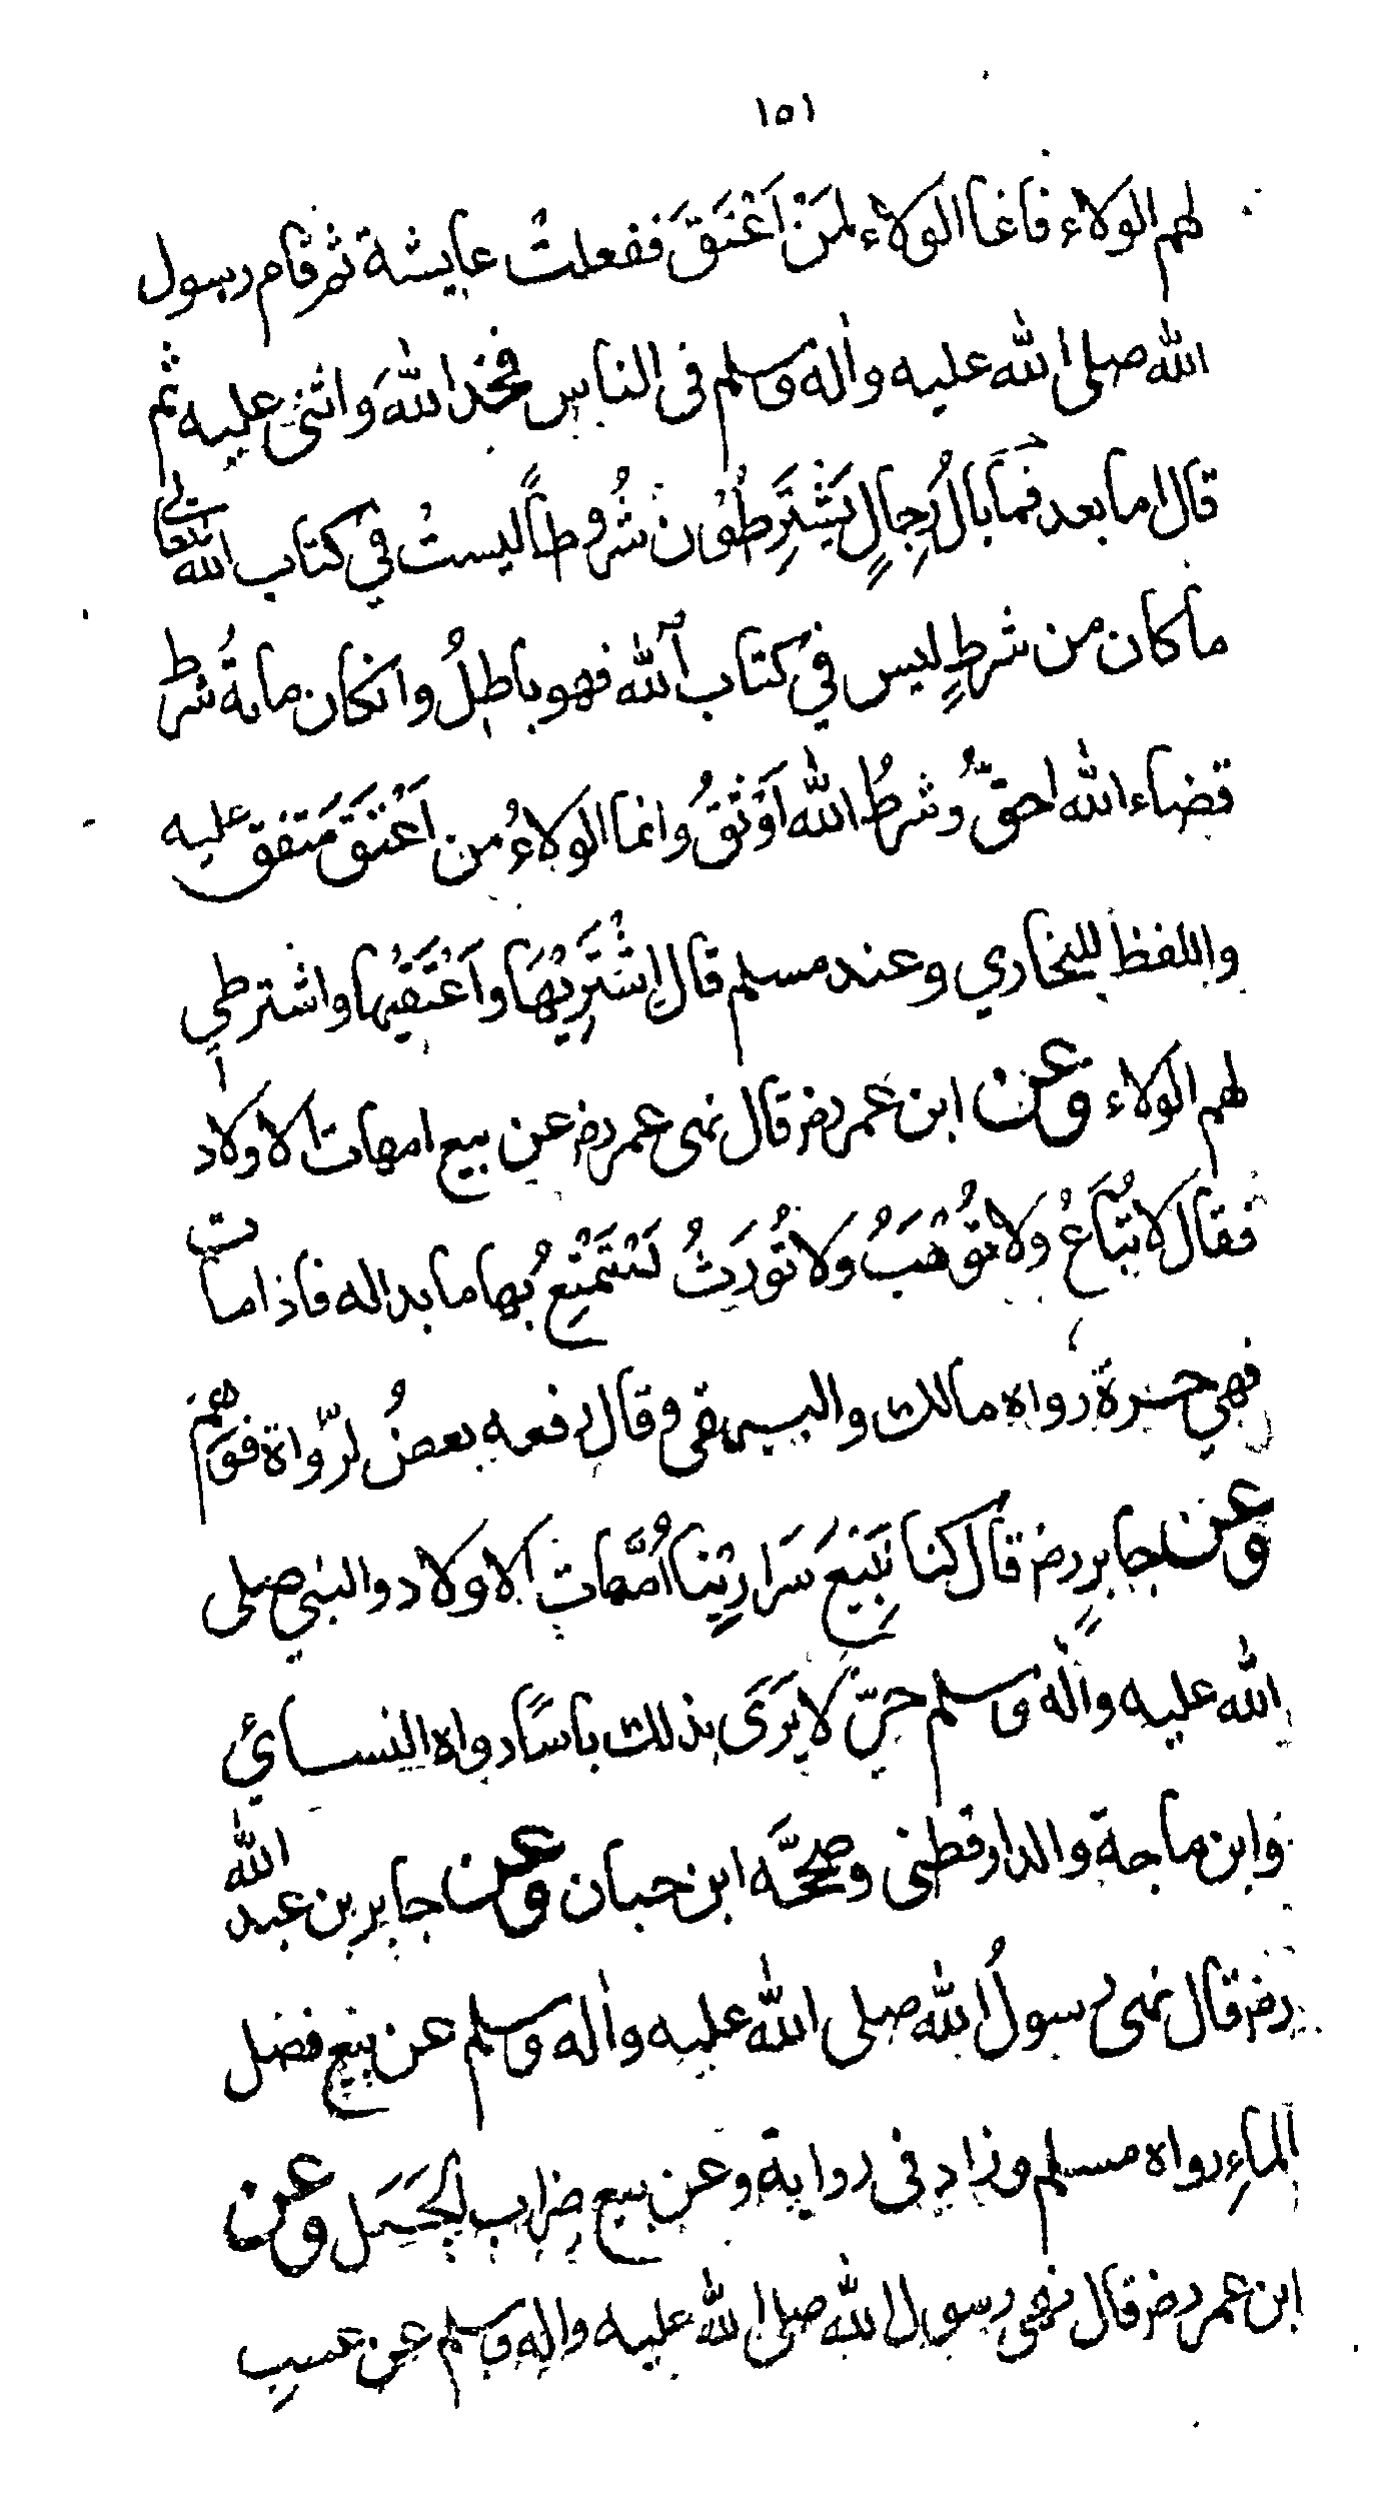 ١٥١
لهم الولاء فانما الولاء لمَنْ اَعْتَقَ ففعلتْ عايشة ثم قام رسول
الله صلى الله عليه واله وسلم فى الناس فحمد اللهَ وَاثنى عليه ثم
قال اما بعد فَمَا بَالُ رِجالٍ يَشْتَرِطُوْنَ شُروطاً ليستْ في كتاب الله تعالى
ما كان من شرطٍ ليس في كتاب الله فهو باطلُ وانكان مایةُ شرط
قضاء الله احقُّ وشرطُ الله اَوْثَقُ وَانما الولاءُ من اَعْتَقَ متفق عليه
واللفظ للبخاري وعند مسلم قال اِشْتَرِيْهَا واَعْتَقِيْها واشترطي
لهم الولاء وعن ابن عمر رضـ قال نهى عمر رضـ عن بيع امهات الاولاد
فقال لا تُباَعُ ولا تُوْهَبُ ولا تُورَثُ تَسْتَمْتِعُ بها ما بدا له فاذا مات
فهي حرة رواه مالك والبيهقى وقال رفعه بعضُ لرّواة فوَهِمَ
وعن جابرٍ رضـ قال كنا نَبِيْعَ سَرَارِيْنا اُمَّهات الاولاد والنبي صلى
الله عليه واله وسلم حيّ لا يَرَى بذلك باسًا رواه النسائي
وابن ماجة والدارقطنى وصححَّه ابن حبان وعن جابر بن عبد الله
رضـ قال نهى رسولُ الله صلى الله عليه واله وسلم عن بيع فضل
الماءِ رواه مسلم وزاد فى رواية وعن بيع ضراب الجَمَل وعن
ابن عمر رضـ قال نهى رسول الله صلى الله عليه واله وسلم عن عسبِ